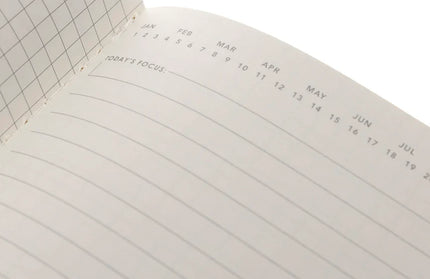 JAN FEB MAR APR MAY JUN JUL
1 2 3 4 5 6 7 8 9 10 11 12 13 14 15 16 17 18 19
TODAY'S FOCUS: